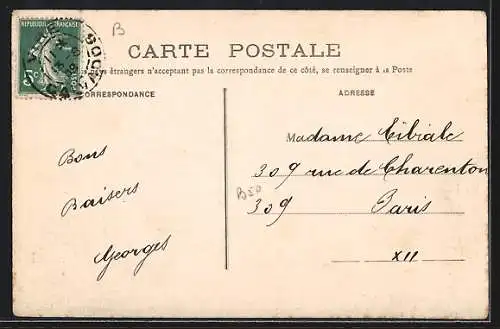 B
RÉPUBLIQUE FRANÇAISE
5c
CARTE POSTALE
pays étrangers n'acceptant pas la correspondance de ce côté, se renseigner à la Poste
CORRESPONDANCE
ADRESSE
Bons
Baisers
Georges
Madame
309 rue de Charenton
B50
309 Paris
XII